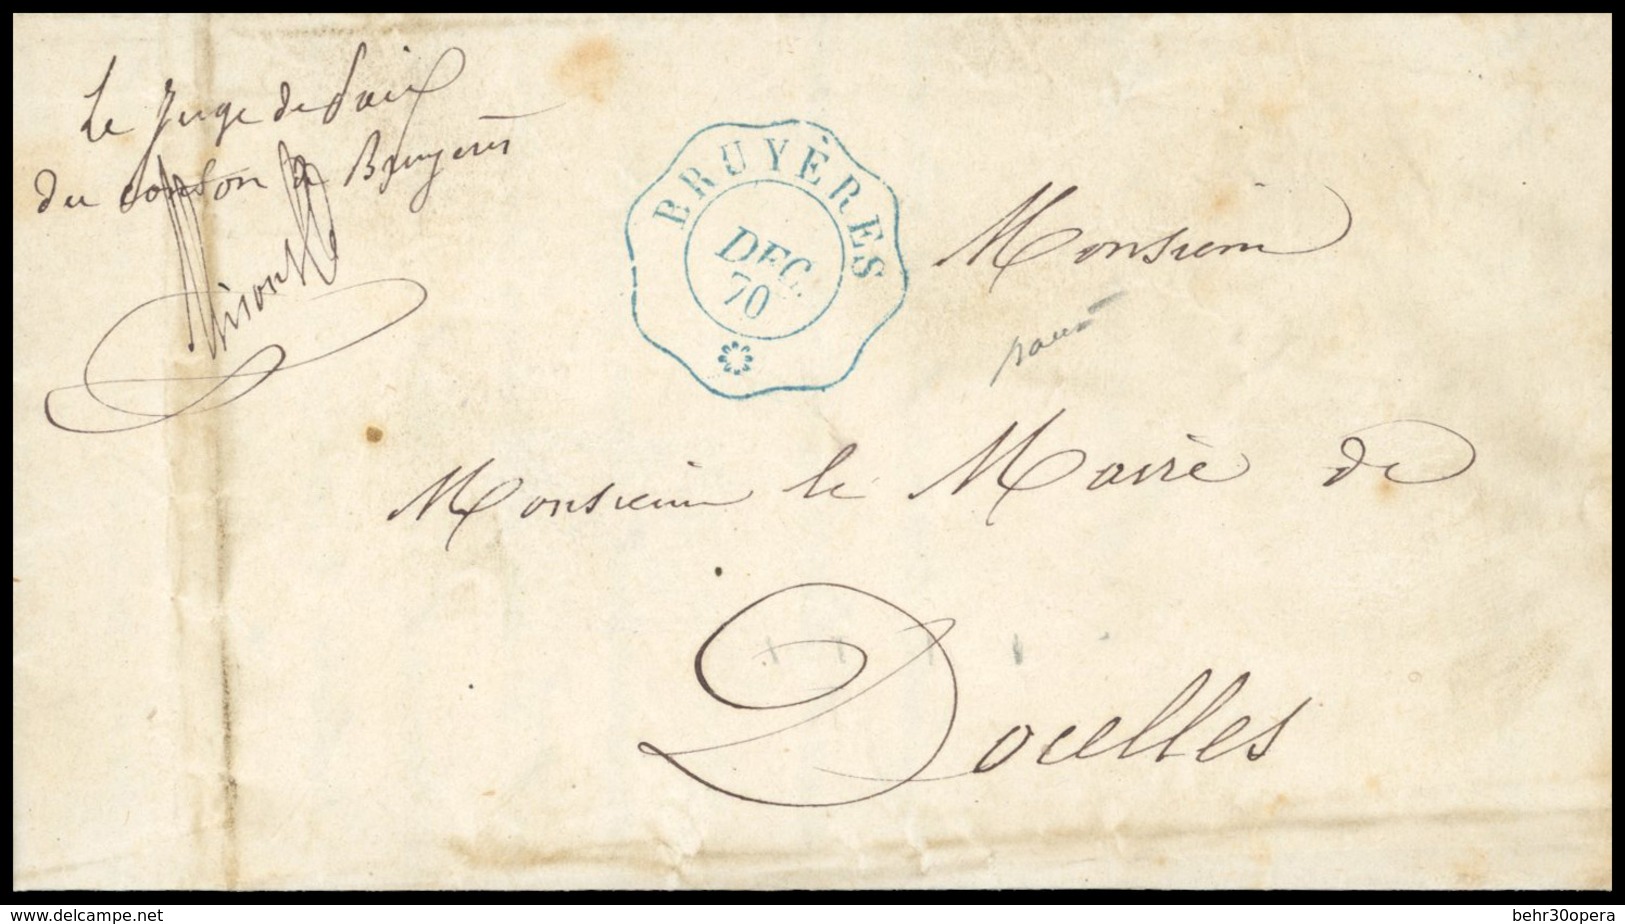 Le Juge de Paix
du Canton de Bruyères
BRUYÈRES
DEC.
70
Monsieur
Monsieur le Maire de
Docelles
delcampe.net
behr30opera